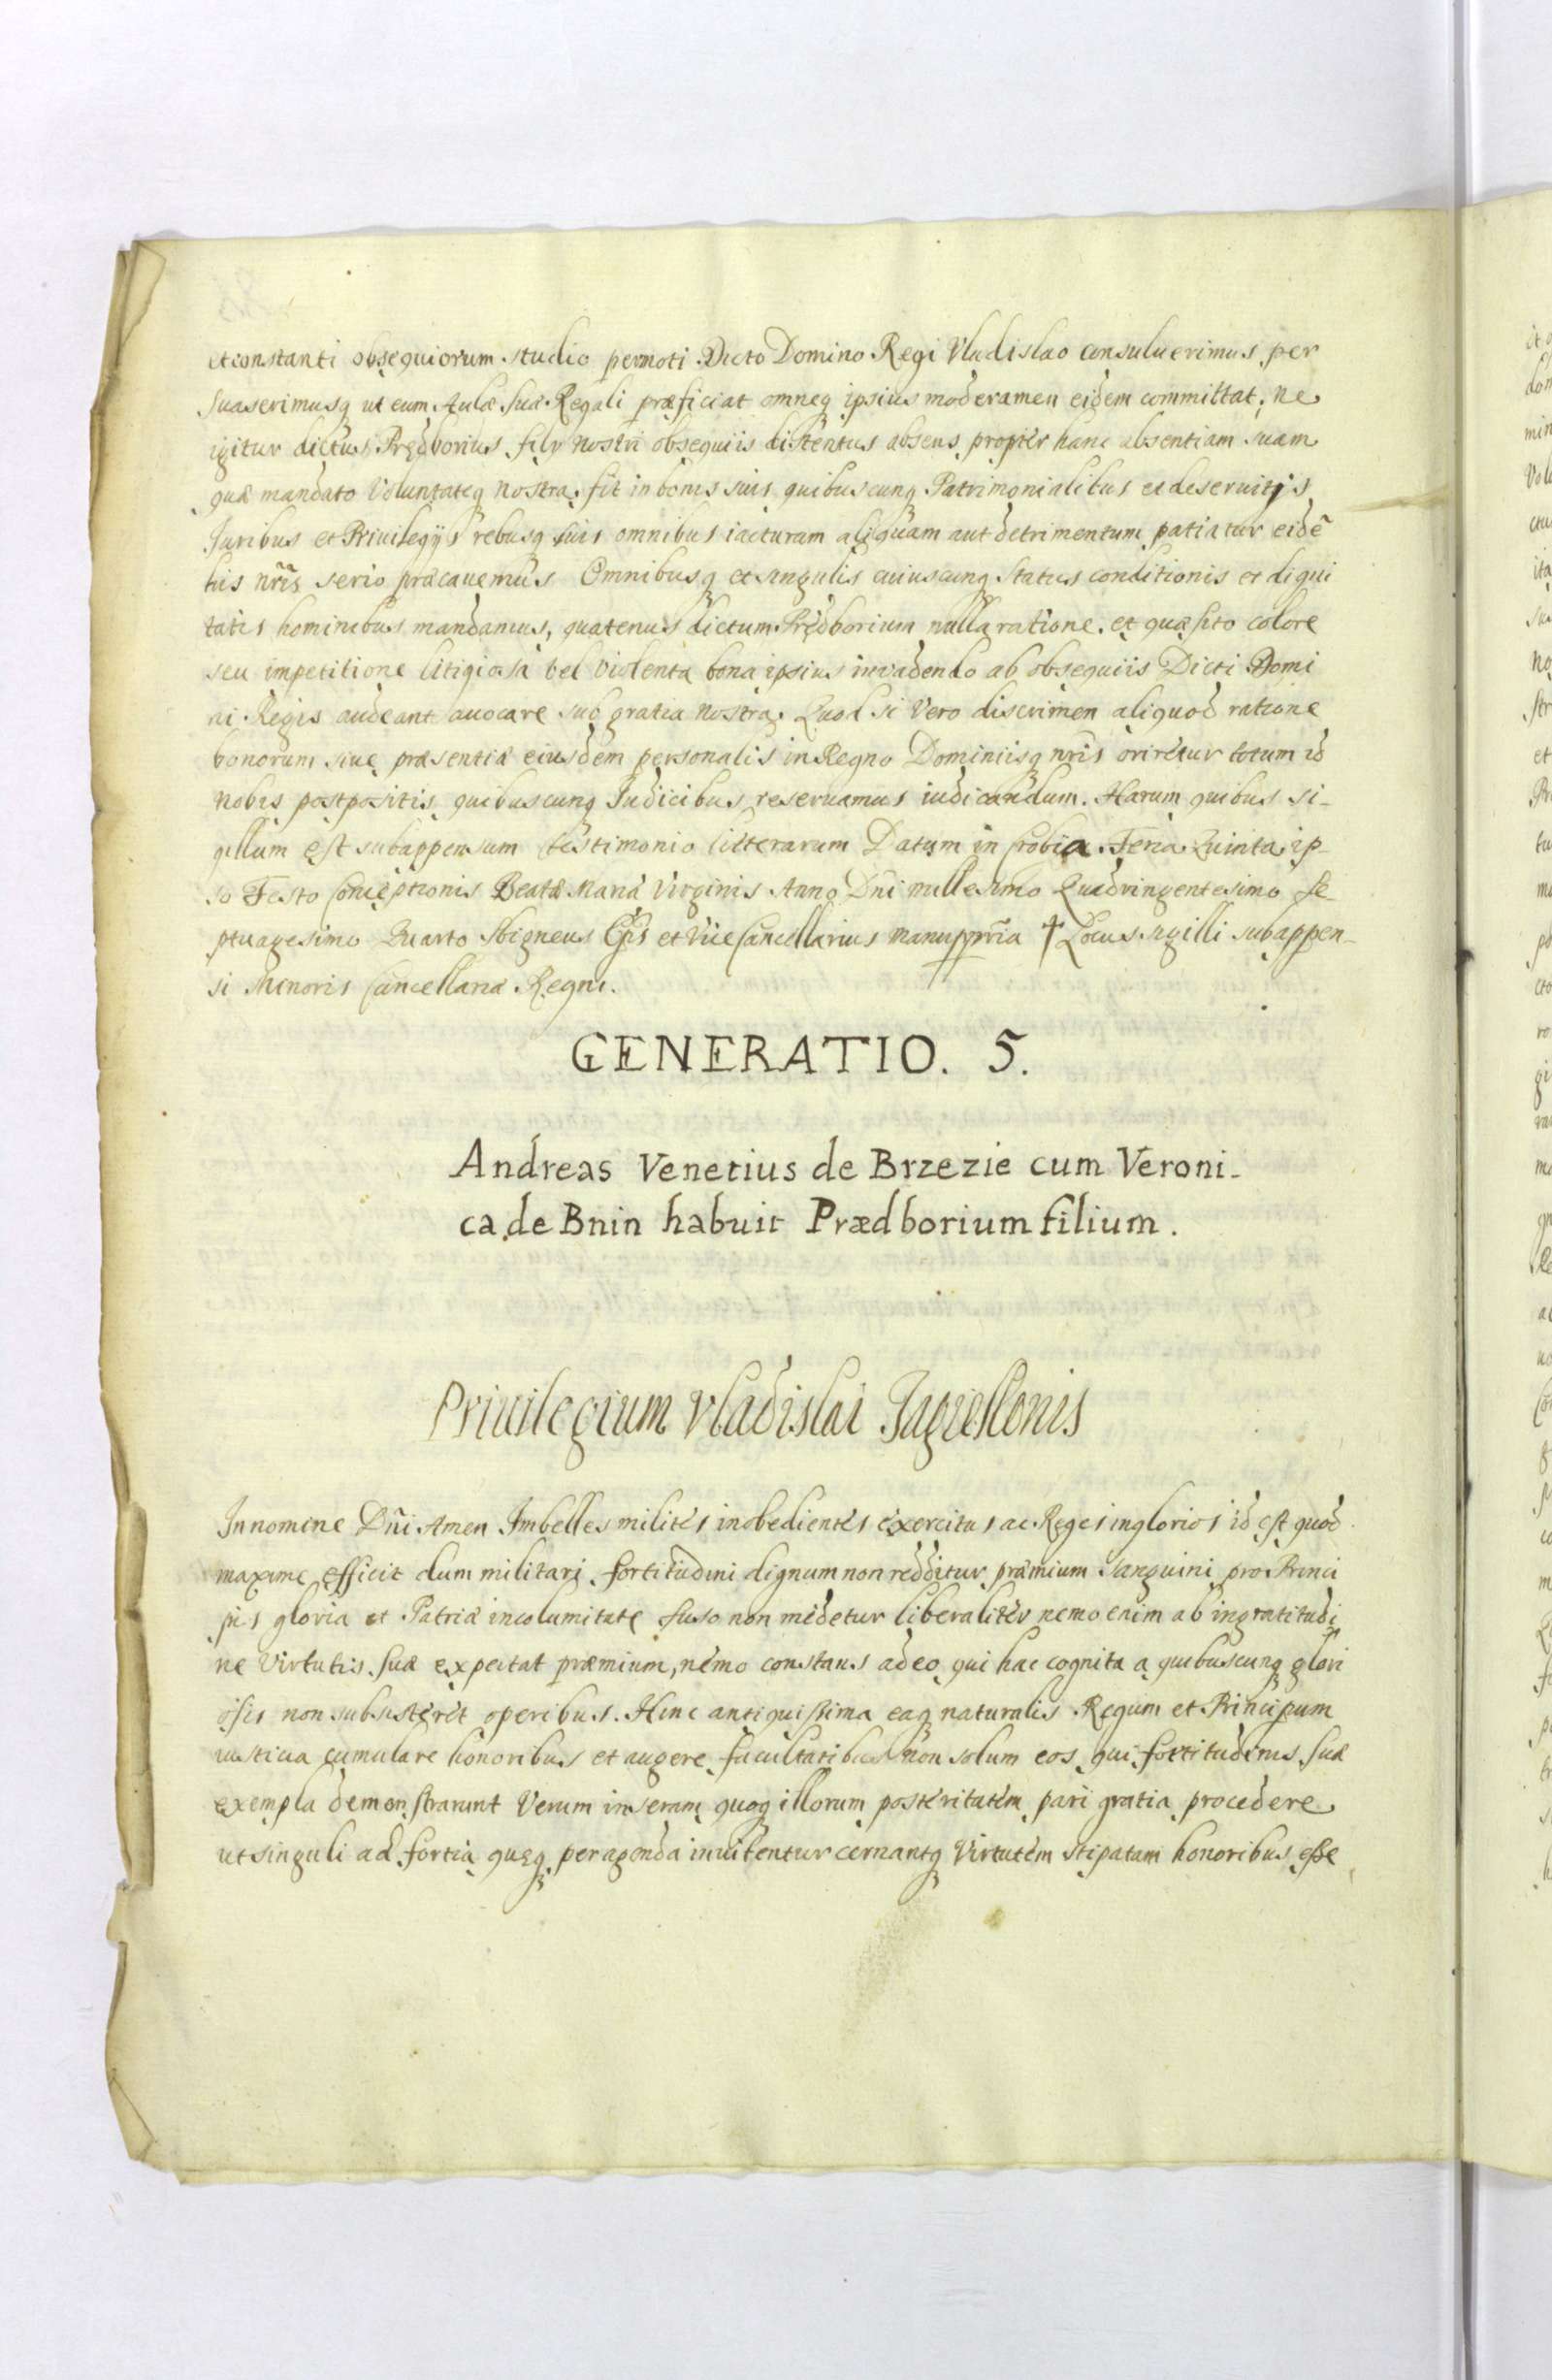 et constanti obsequiorum studio permoti Dicto Domino Regi Vladislao consuluerimus per
suaserimusq ut eum Aulæ suæ Regali præficiat omneq ipsius moderamen eidem committat, ne
igitur dictus Prędborius filij nostri obsequiis distentus absens propter hanc absentiam suam
quæ mandato Voluntateq nostra fit in bonis suis quibuscunq Patrimonialibus et deseruitijs
Iuribus et Priuilegijs rebusq suis omnibus iacturam aliquam aut detrimentum patiatur eidẽ
his nr̃is serio præcauemus Omnibusq et singulis cuiuscunq status conditionis et digni
tatis hominibus mandamus, quatenus dictum Prędborium nulla ratione et quæsito colore
seu impetitione litigiosa vel violenta bona ipsius invadendo ab obsequiis Dicti Domi
ni Regis audeant auocare sub gratia nostra. Quod si Vero discrimen aliquod ratione
bonorum siue præsentiæ eiusdem personalis in Regno Dominiisq nr̃is oriretur totum id
nobis postpositis quibuscunq Iudicibus reseruamus iudicandum. Harum quibus si-
gillum est subappensum testimonio litterarum Datum in Srobia Feria Quinta ip-
so Festo Conceptionis Beatæ Mariæ Virginis Anno Dñi millesimo Quadringentesimo se-
ptuagesimo Quarto Sbigneus Ep̃s et Vice Cancellarius manuppria † Locus sigilli subappen-
si Minoris Cancellariæ Regni.
GENERATIO. 5.
Andreas Venetius de Brzezie cum Veroni-
ca de Bnin habuit Prædborium filium.
Priuilegium Vladislai Jagiellonis
In nomine Dñi Amen Imbelles milites inobedientes exercitus ac Reges inglorios id est quod
maxime efficit dum militari fortitudini dignum non redditur præmium sanguini pro Princi
pis gloria et Patriæ incolumitate fuso non medetur liberaliter nemo enim ab ingratitudi
ne Virtutis suæ expectat præmium, nemo constans adeo qui hac cognita a quibuscunq glori
osis non subsisteret operibus. Hinc antiquissima eaq naturalis Regum et Principum
iusticia cumulare honoribus et augere facultatibus non solum eos qui fortitudinis suæ
exempla demonstrarunt Verum inseram quoq illorum posteritatem pari gratia procedere
ut singuli ad fortia quęq peragenda inuitentur cernantq Virtutem stipatam honoribus esse